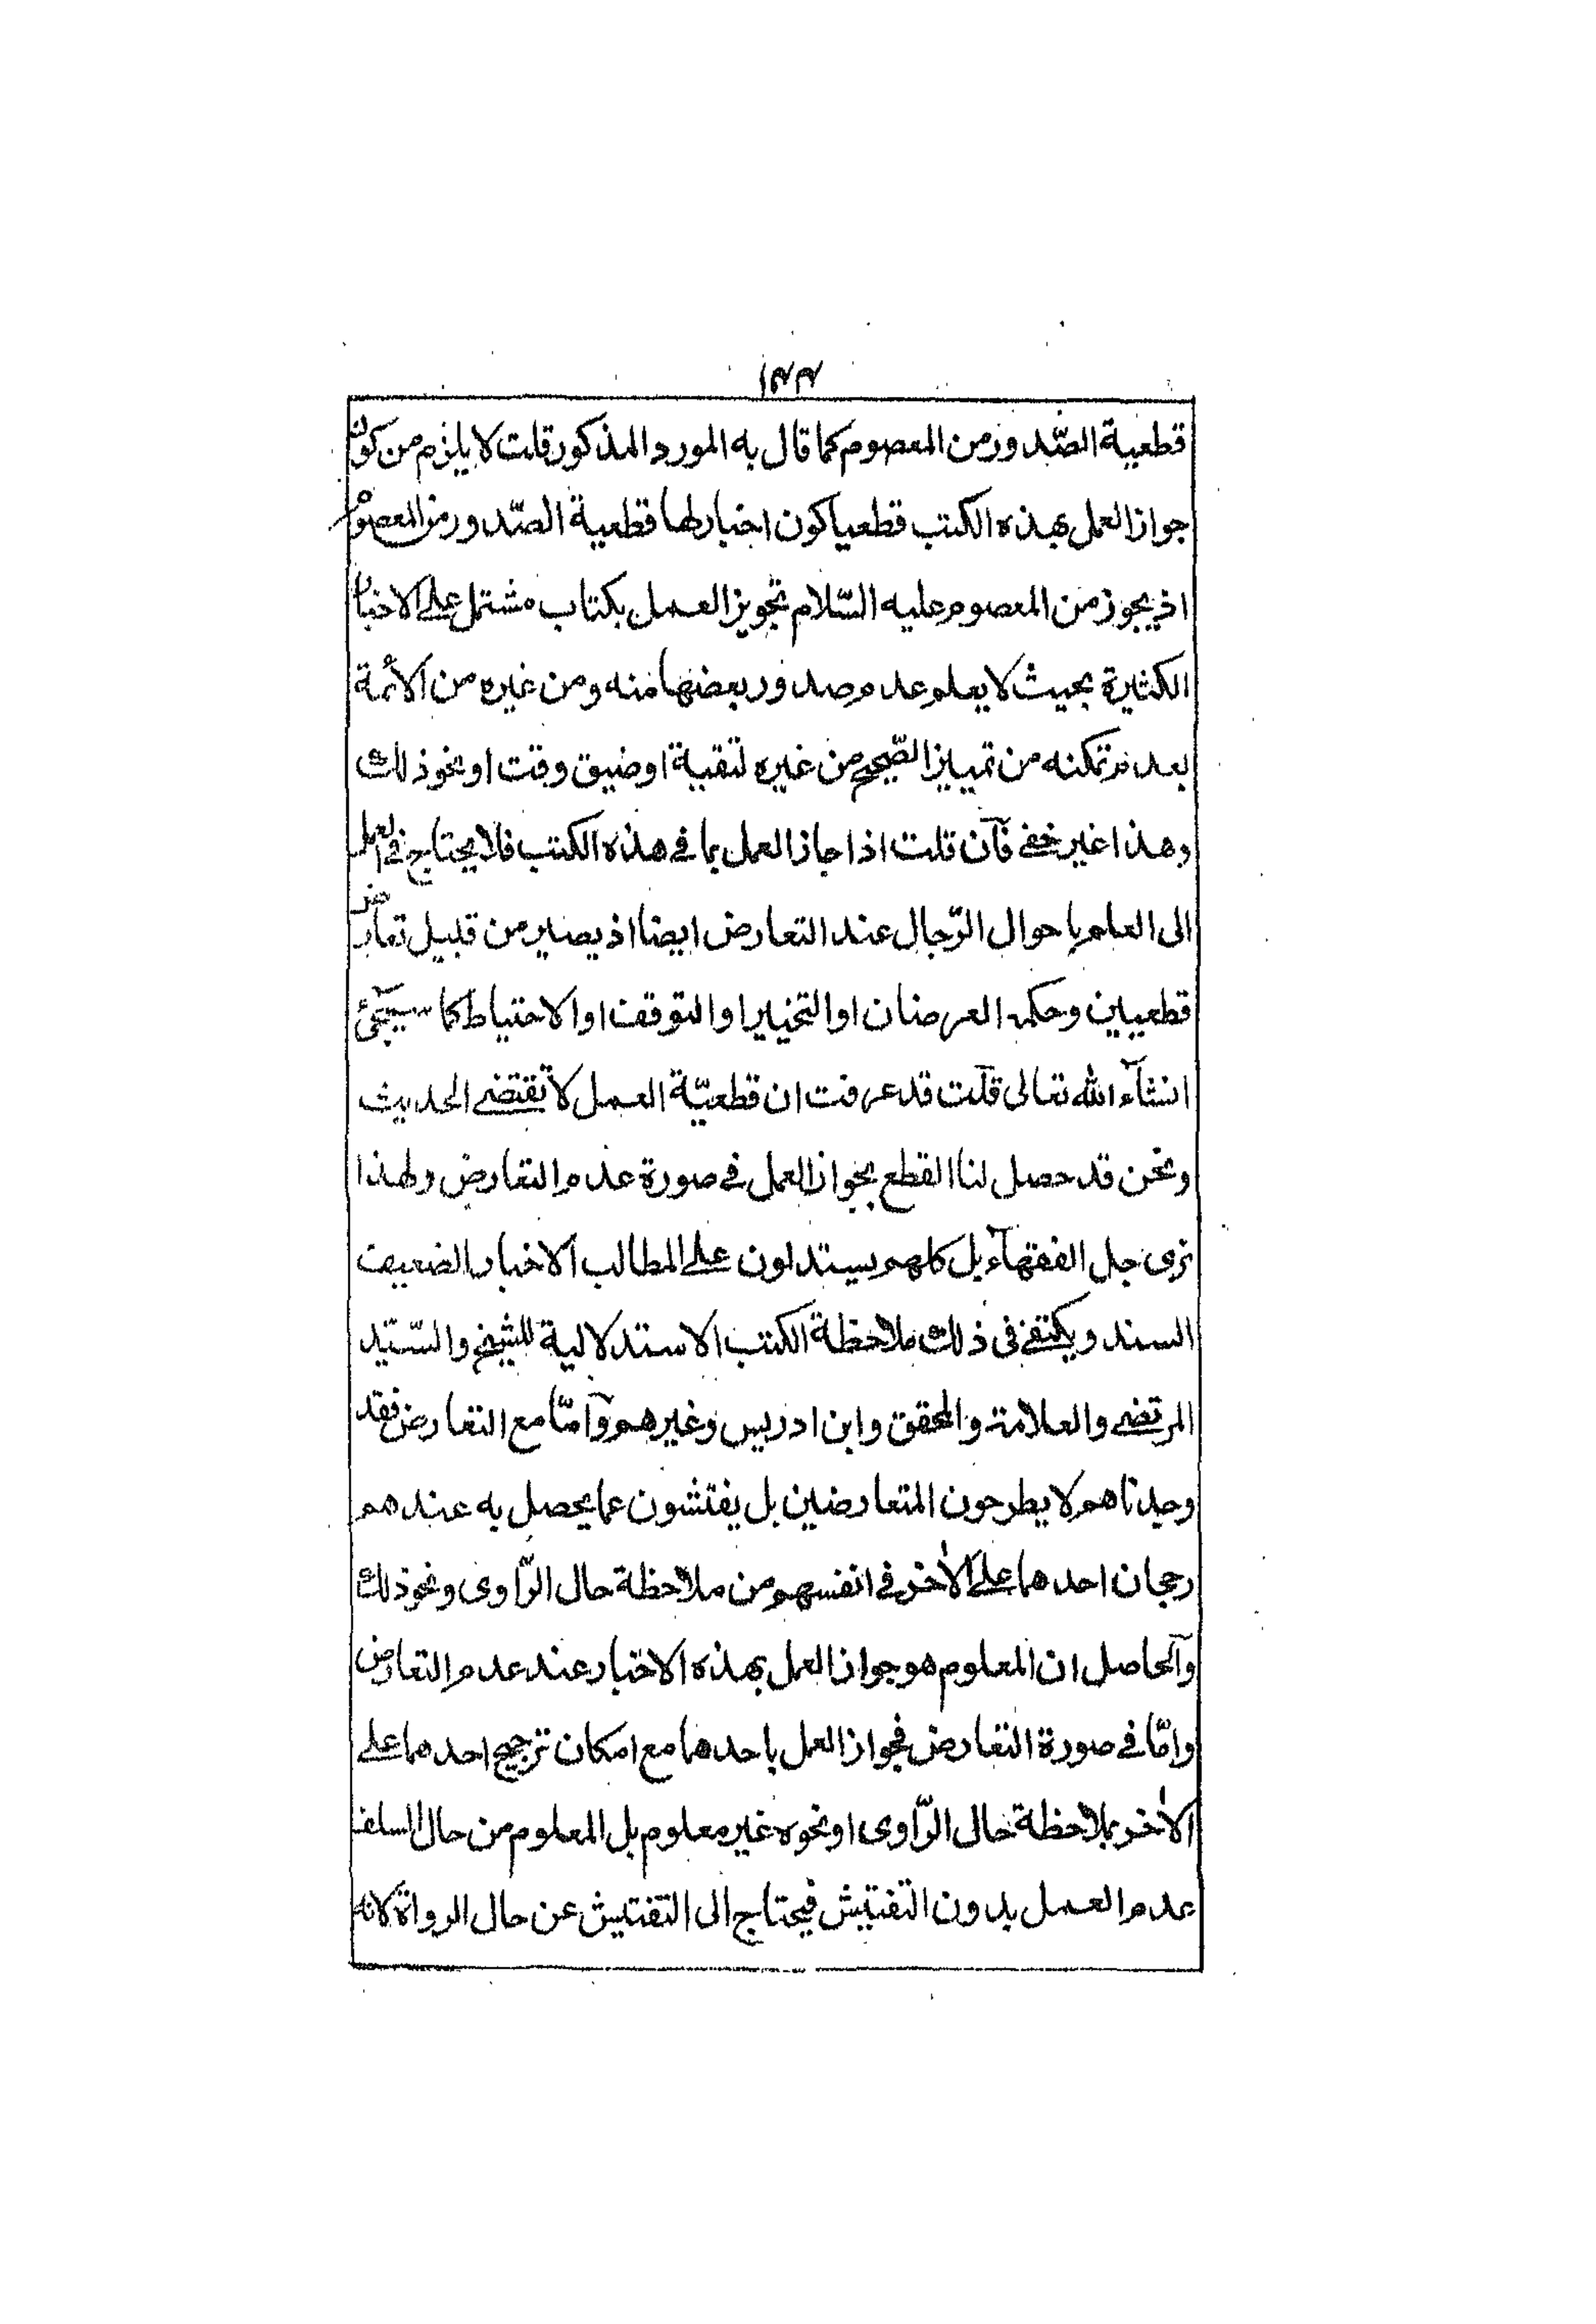 ١٣٣
قطعية الصّدور من المعصوم كما قال به المورد المذكور قلت لا يلزم من كون
جواز العمل بهذه الكتب قطعيا كون اخبارها قطعية الصّدور من المعصوم
اذ يجوز من المعصوم عليه السّلام تجويز العمل بكتاب مشتمل على الاخبار
الكثيرة بحيث لا يعلم عدم صدور بعضها منه ومن غيره من الأئمة
بعدم تمكنه من تمييز الصّحيح من غيره لتقية او ضيق وقت او نحو ذلك
وهذا غير خفي فآن قلت اذا جاز العمل بما في هذه الكتب فلا يحتاج في العمل
الى العلم باحوال الرّجال عند التعارض ايضا اذ يصير من قبيل تعارض
قطعيين وحكمه العرضان او التخيير او التوقف او الاحتياط كما سيجئ
انشآء الله تعالى قلت قد عرفت ان قطعيّة العمل لا تقتضي الحديث
ونحن قد حصل لنا القطع بجواز العمل في صورة عدم التعارض ولهذا
نرى جل الفقهآء بل كلهم يستدلون على المطالب الاخبار الضعيف
السند ويكتفي في ذلك ملاحظة الكتب الاستدلالية للشيخ والسّيّد
المرتضى والعلامة والمحقق وابن ادريس وغيرهم وآمّا مع التعارض فقد
وجدناهم لا يطرحون المتعارضين بل يفتشون عما يحصل به عندهم
رجحان احدهما على الآخر في انفسهم من ملاحظة حال الرّاوى ونحو ذلك
وآلحاصل ان المعلوم هو جواز العمل بهذه الاخبار عند عدم التعارض
وامّا في صورة التعارض فجواز العمل باحدهما مع امكان ترجيح احدهما على
الآخر بملاحظة حال الرّاوى او نحوه غير معلوم بل المعلوم من حال السلف
عدم العمل بدون التفتيش فيحتاج الى التفتيش عن حال الرواة لانه